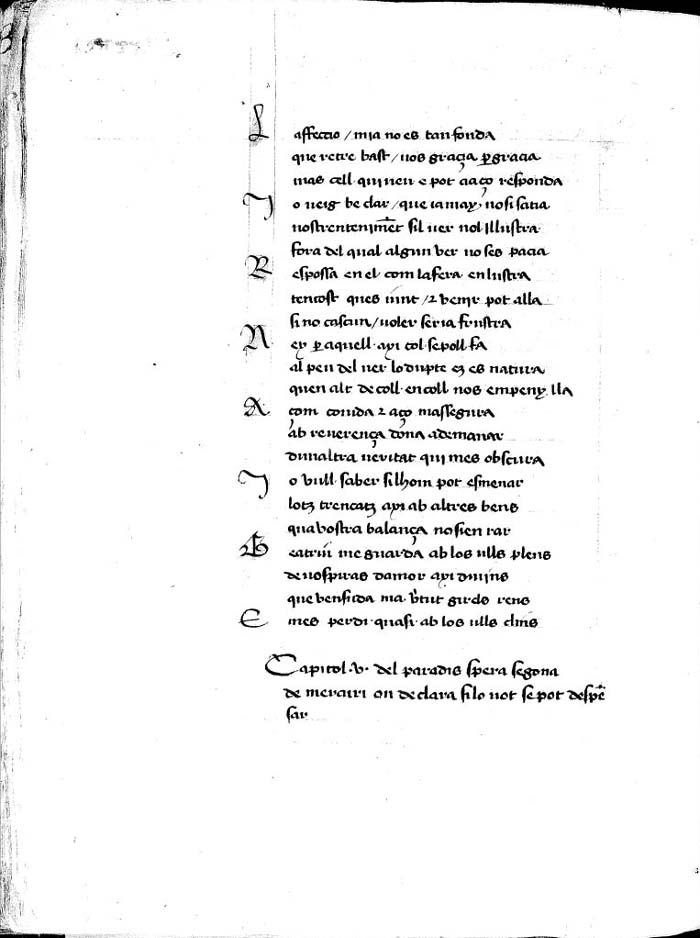 L affectio / mia no es tan fonda
que retre bast / uos gracia ꝑ gracia
mas cell qui ueu e pot aço responda
I o ueig be clar / que iamay nosi satia
nostrentenimēt sil uer nol Illustra
fora del qual algun ver no ses pacia
R esposssa en el com la fera en lustra
tencost ques iunt / ⁊ venir pot alla
si no cascun / uoler seria frustra
N ex ꝑ aquell axi col sepoll fa
al peu del uer lo dupte ez es natura
quen alt de coll en coll nos empeny lla
A çom conuida ⁊ aço massegura
ab reuerença dōna ademanar
dunaltra ueritat qui mes obscura
I o vull saber si lhom pot esmenar
lotz trencatz axi ab altres bens
qua vostra balança no sien rar
B eatriu me guarda ab los ulls plens
de uospiras damor axi diuins
que vensuda ma v̄tut gir ds rens
E mes perdi quasi ab los ulls clins
Capitol .v. del paradis spera segona
de mercuri on declara si lo uot se pot despē
sar